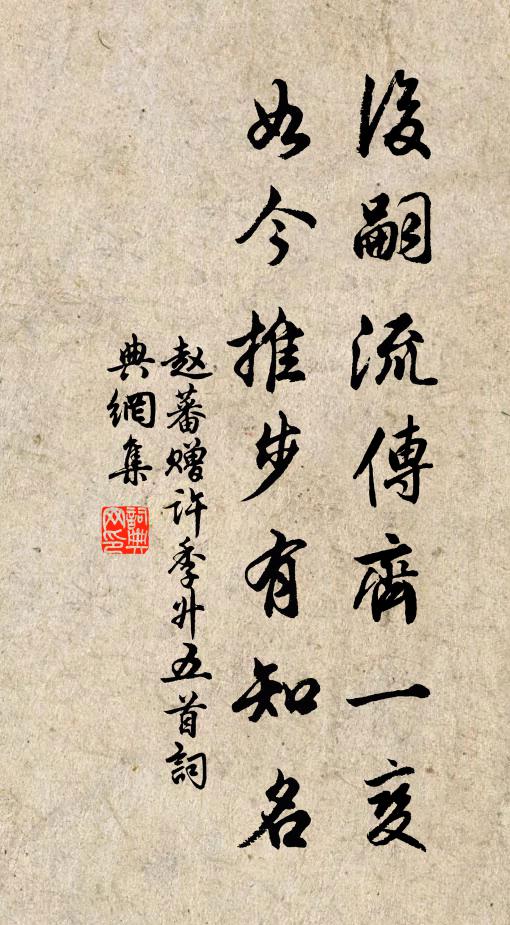 後嗣流傳齊一变
如今推步有知名
赵蕃赠许季升五首詞
典網集
詞典网印